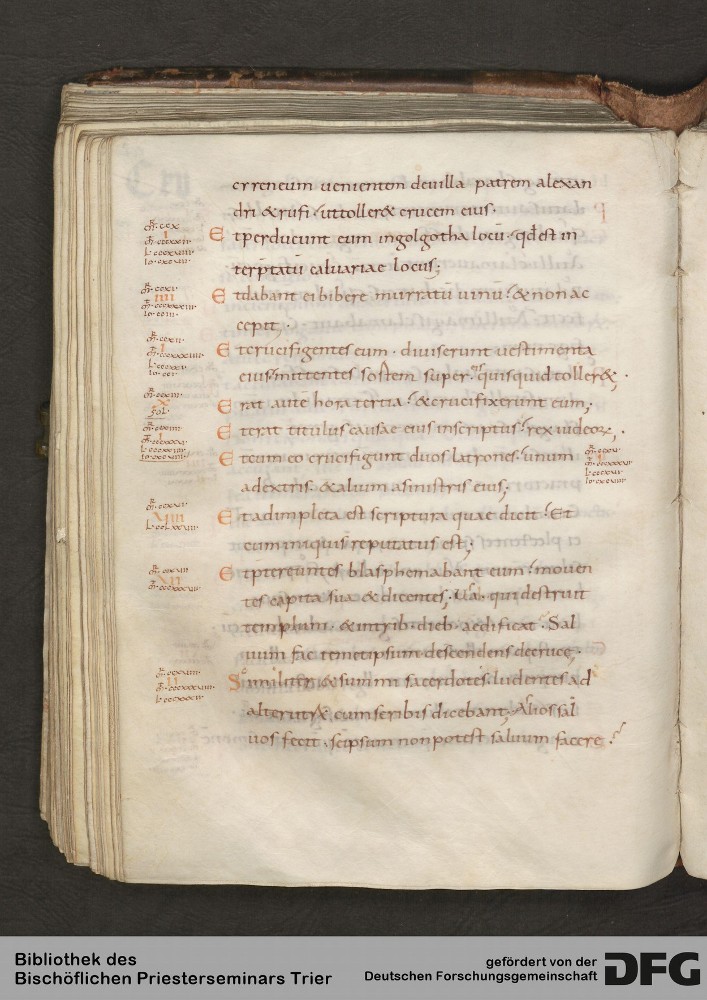 cyreneum uenientem deuilla patrem alexan
dri & rufi. uttoller& crucem eius.
Etperducunt eum ingolgotha locū. qđest in
terp̄tatū caluariae locus;
Etdabant ei bibere murratū uinū. & non ac
cepit;.
Etcrucifigentes eum. diuiserunt uestimenta
eius. mittentes sortem super. quis quid toller&;
Erat aute hora tertia. & crucifixerunt eum;
Eterat titulus causae eius inscriptus. rex iudeoꝝ;
Etcum eo crucifigunt duos latrones. unum
adextris. & alium asinistris eius;
Etadimpleta est scriptura quae dicit. Et
cum iniquis reputatus est;
Etp̄tereuntes blasphemabant eum. mouen
tes capita sua & dicentes; Uah. qui destruit
templum. & intrib. dieb. aedificat. Sal
uum fac temetipsum descendens decruce.
Similiter & summi sacerdotes. ludentes ad
alterutrū cum scribis dicebant; Alios sal
uos fecit. seipsum non potest saluum facere.
Bibliothek des
Bischöflichen Priesterseminars Trier
gefördert von der
Deutschen Forschungsgemeinschaft
DFG